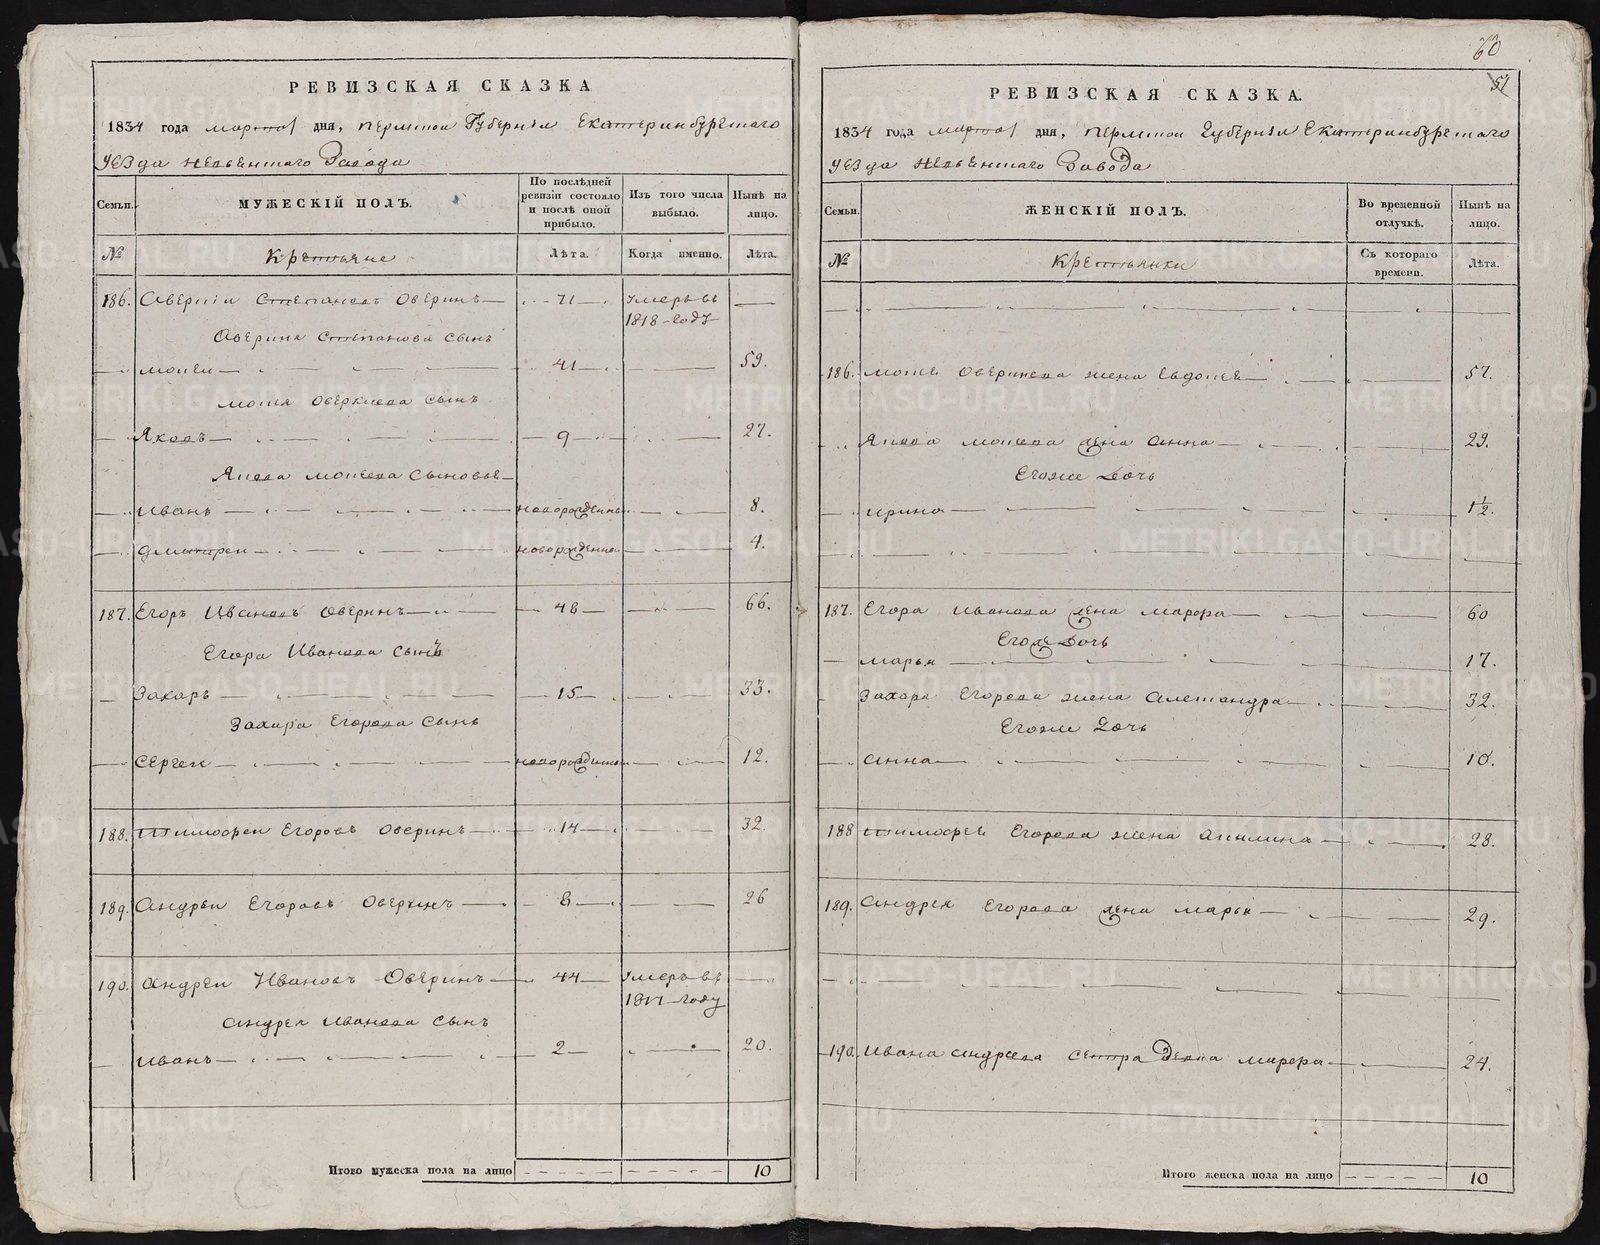 РЕВИЗСКАЯ СКАЗКА
1834 года марта дня, Пермской Губернiи Екатеринбургскаго
уезда Невьянскаго Завода
Семьи.
МУЖЕСКIЙ ПОЛЪ.
По послѣдней ревизiи состояло и послѣ оной прибыло.
Изъ того числа выбыло.
Нынѣ на лицо.
№
Крестьяне
Лѣта.
Когда именно.
Лѣта.
186. Аверкiй Степановъ Оверинъ 71 умеръ въ 1818 году
Аверкiя Степанова сынъ
Мокей 41 59.
Мокея Оверкiева сынъ
Яковъ 9 27.
Якова Мокеева сыновья
Иванъ новорожденны 8.
Дмитрей новорожденна 4.
187. Егоръ Ивановъ Оверинъ 48 66.
Егора Иванова сынъ
Захаръ 15 33.
Захара Егорова сынъ
Сергей новорожденны 12.
188. Тимофей Егоровъ Оверинъ 14 32.
189. Андрей Егоровъ Оверкинъ 8 26
190. Андрей Ивановъ Оверинъ 44 умеръ въ году
Андрея Иванова сынъ
Иванъ 2 20.
Итого мужеска пола на лицо 10
60
51
РЕВИЗСКАЯ СКАЗКА.
1834 года марта дня, Пермской губернiи Екатеринбургскаго
уезда Невьянскаго Завода
Семьи.
ЖЕНСКIЙ ПОЛЪ.
Во временной отлучкѣ.
Нынѣ на лицо.
№
Крестьянки
Съ котораго времени.
Лѣта.
186. Мокея Оверкиева жена Евдокея 57.
Якова Мокеева жена Анна 29.
Егоже дочь
Ирина 1½.
187. Егора Иванова жена Марфа 60
Егоже дочь
Марья 17.
Захара Егорова жена Александра 32.
Егоже дочь
Анна 10.
188 Тимофея Егорова жена Акилина 28.
189. Андрея Егорова жена Марья 29.
190. Ивана Андреева сестра девка Марфа 24.
Итого женска пола на лицо 10
METRIKI.GASO-URAL.RU